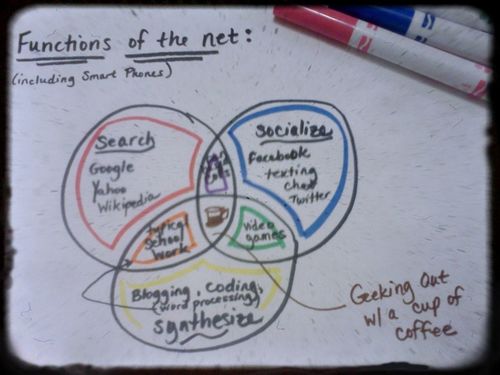 Functions of the net:
(including Smart Phones)
Search
Google
Yahoo
Wikipedia
Socialize
Facebook
texting
chat
Twitter
typical
school
work
video
games
Blogging, coding,
(word processing)
synthesize
Geeking Out
w/ a cup of
coffee